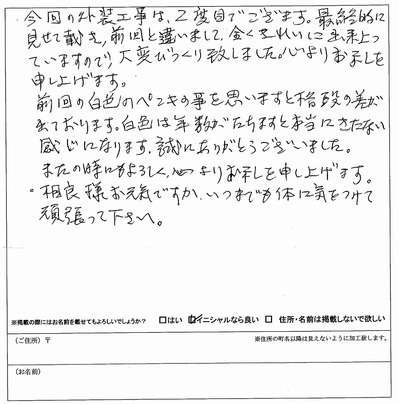 ・今回の外装工事は、2度目でございます。最終的に
見せて戴き、前回と違いまして、全くきれいに出来上っ
ていますので、大変びっくり致しました。心よりお示しを
申し上げます。
前回の白色のペンキの事を思いますと格段の差が
出ております。白色は年数がたちますと本当にきたない
感じになります。誠にありがとうございました。
またの時にもよろしく、心よりお示しを申し上げます。
・相良様お元気ですか、いつまでも体に気をつけて
頑張って下さい。
※掲載の際にはお名前を載せてもよろしいでしょうか？ □はい ☑イニシャルなら良い □ 住所・名前は掲載しないで欲しい
（ご住所）〒 ※住所の町名以降は見えないように加工致します。
（お名前）